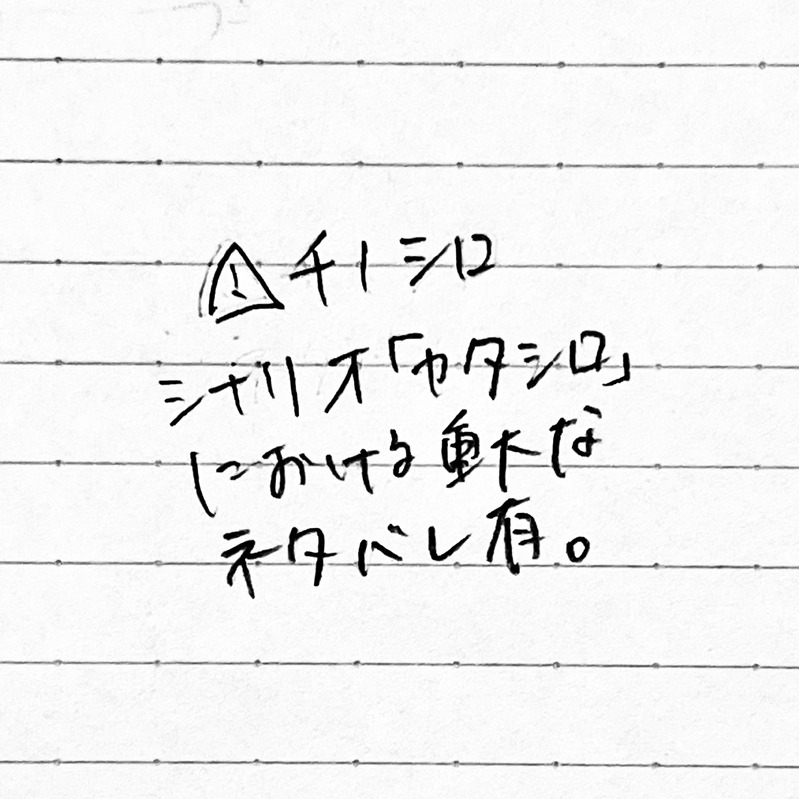 ⚠チノシロ
シナリオ「カタシロ」
における重大な
ネタバレ有。